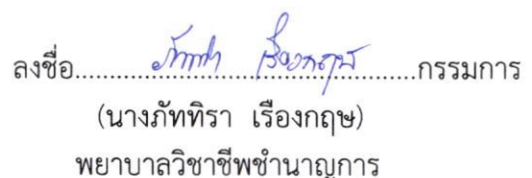 ลงชื่อ......ภัททิรา เรืองกฤษ......กรรมการ
(นางภัททิรา เรืองกฤษ)
พยาบาลวิชาชีพชำนาญการ